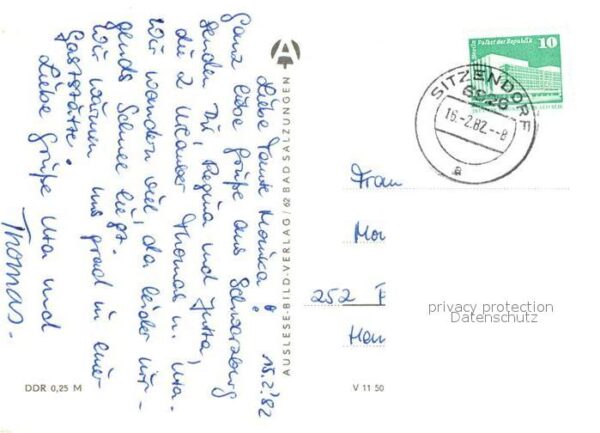 15.2.82
Liebe Tante Monika!
Ganz liebe Grüße aus Schwarzburg
senden Dir, Regina und Jutta,
die 2 Urlauber Thomas u. Uta.
Wir wandern viel, da leider nir-
gends Schnee liegt.
Wir wärmen uns grad in einer
Gaststätte!
Liebe Grüße Uta und
Thomas.
DDR 0,25 M
A
AUSLESE-BILD-VERLAG / 62 BAD SALZUNGEN
V 11 50
Berlin Palast der Republik 10
DDR
SITZENDORF
6826
16.-2.82.--8
a
Frau
252
privacy protection
Datenschutz